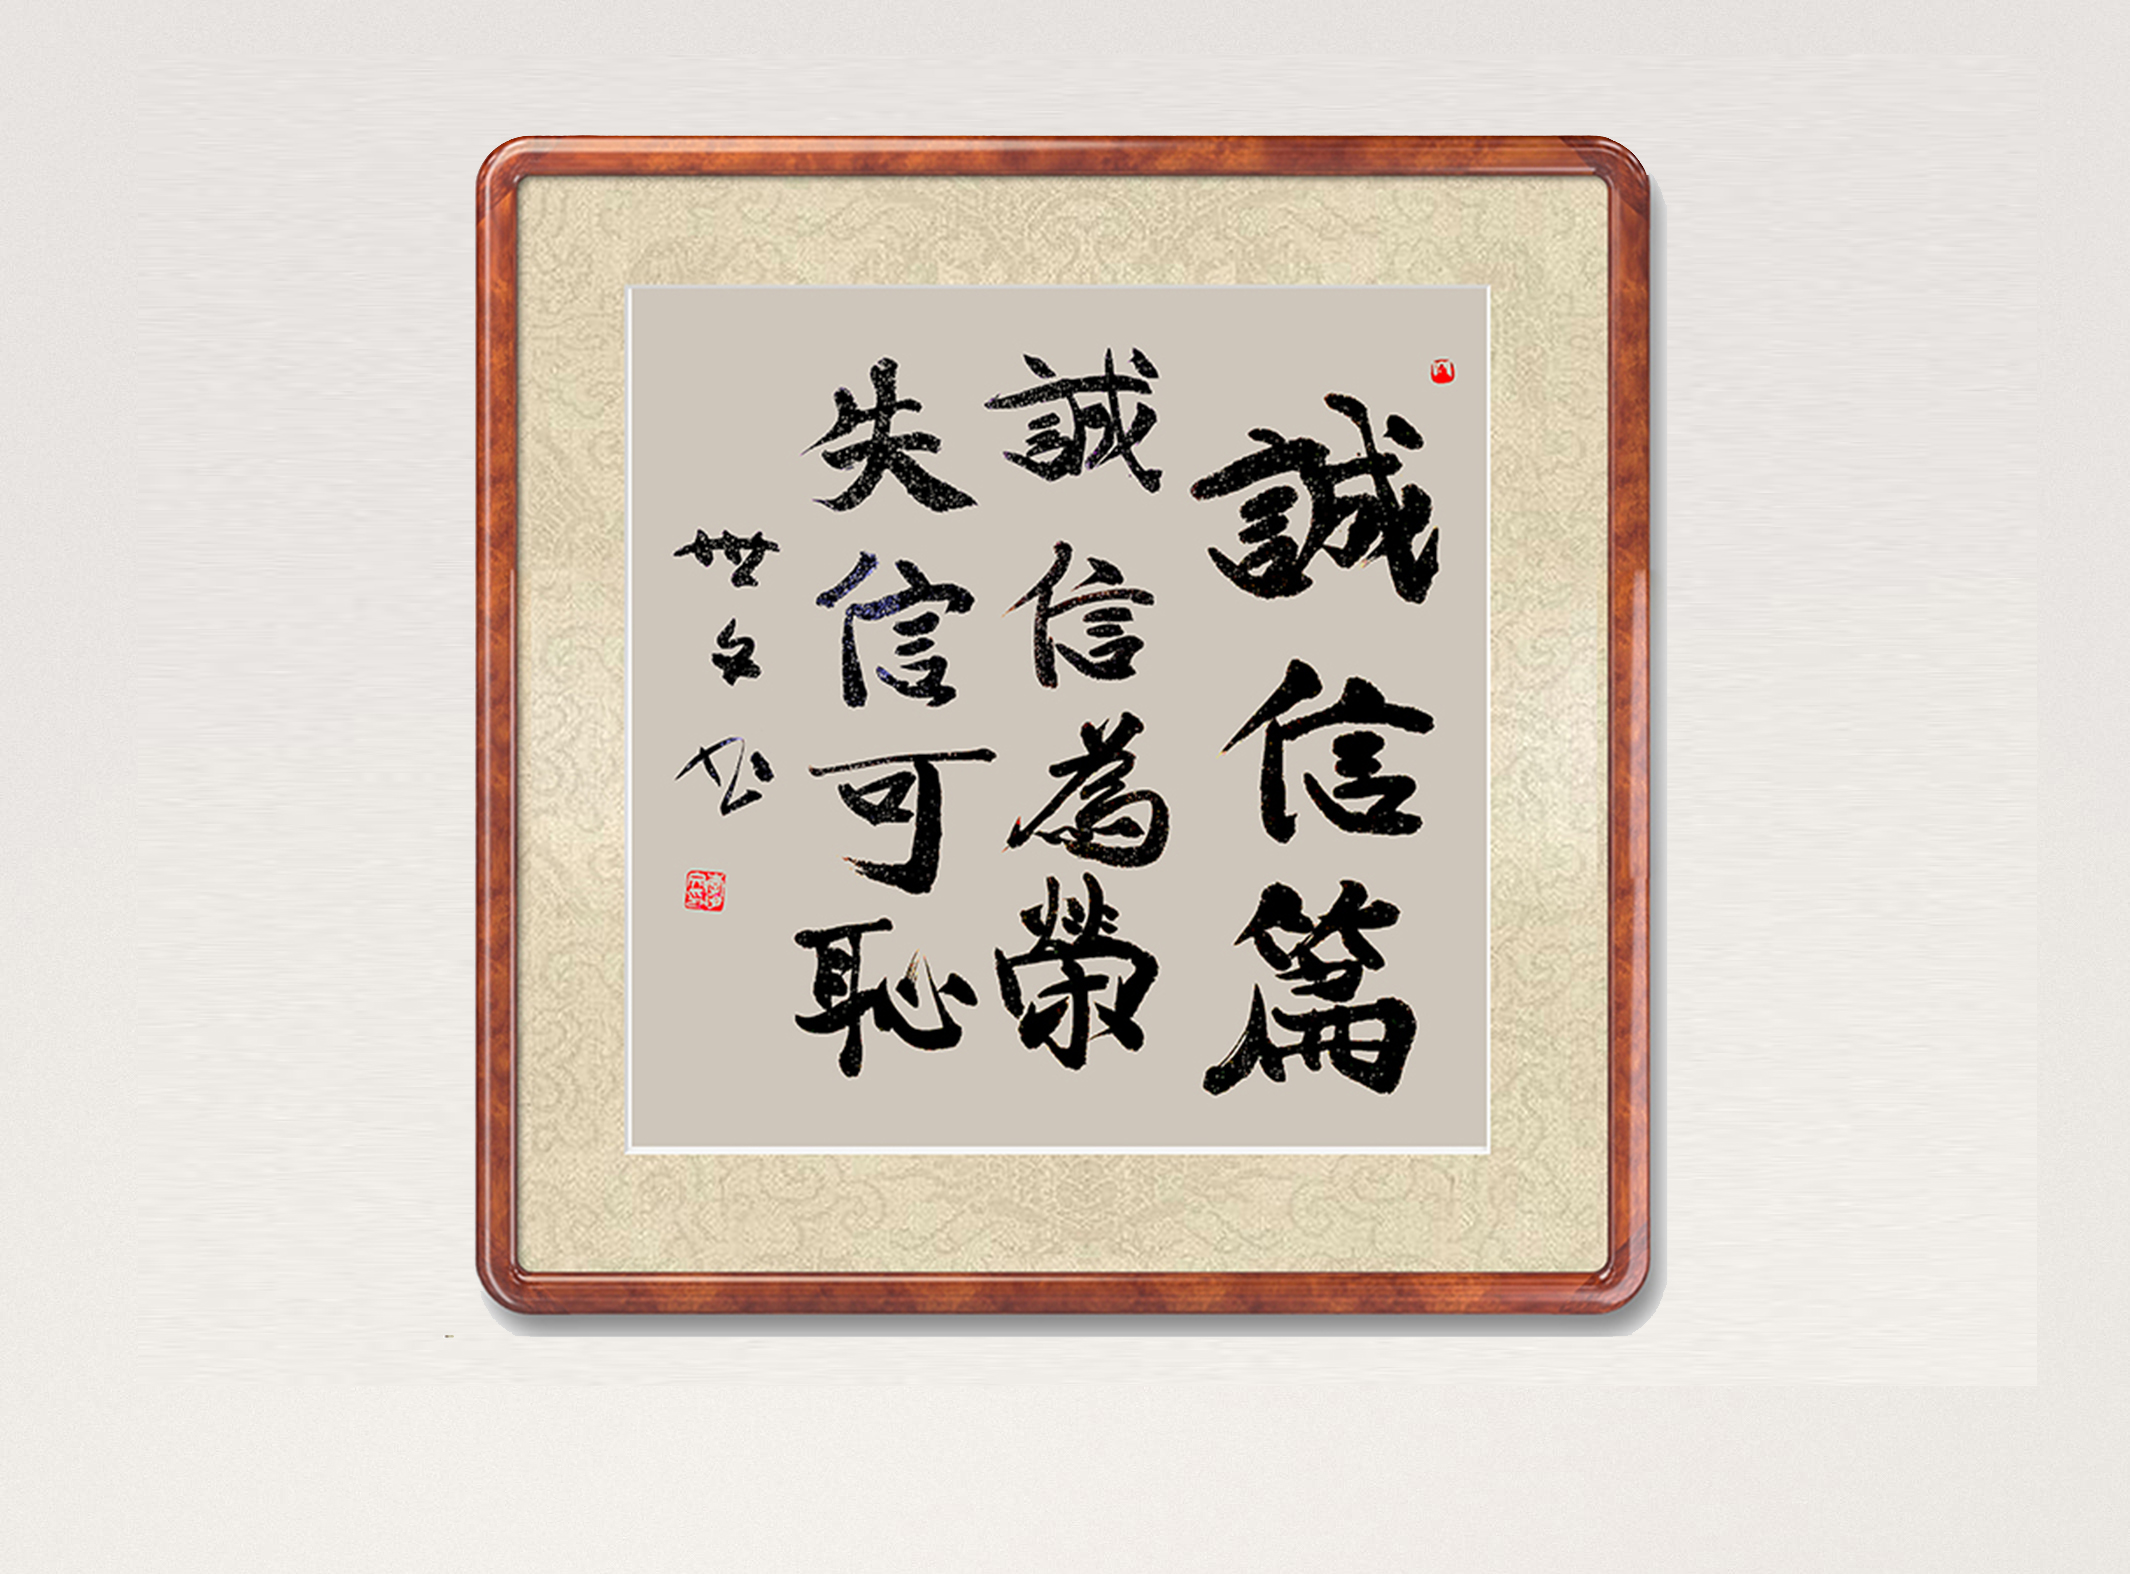 誠信篇
誠信為榮
失信可恥
世文书